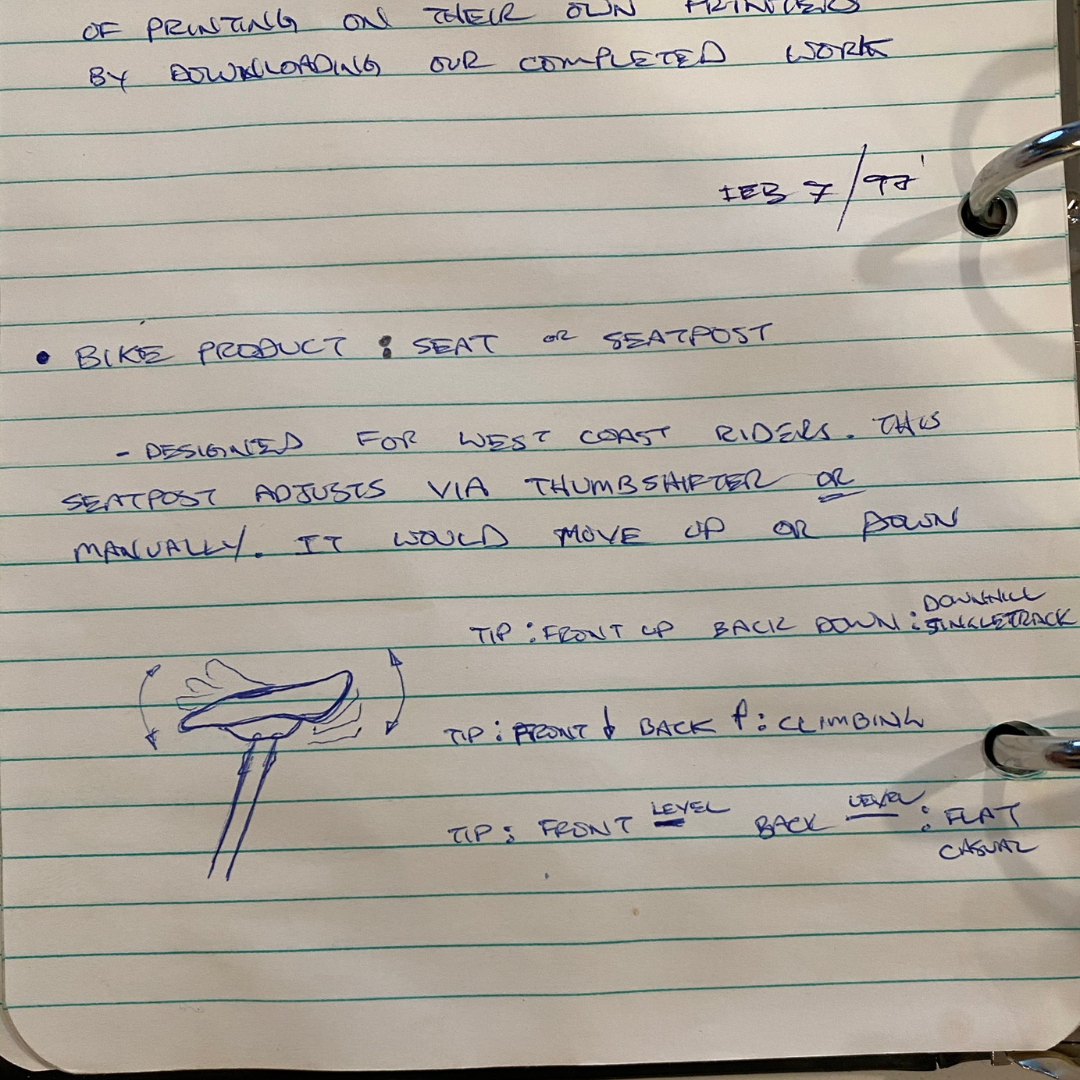 OF PRINTING ON THEIR OWN PRINTERS
BY DOWNLOADING OUR COMPLETED WORK
FEB 7/97'
• BIKE PRODUCT : SEAT OR SEATPOST
- DESIGNED FOR WEST COAST RIDERS. THIS
SEATPOST ADJUSTS VIA THUMBSHIFTER OR
MANUALLY. IT WOULD MOVE UP OR DOWN
TIP : FRONT UP BACK DOWN : DOWNHILL SINGLETRACK
TIP : FRONT ↓ BACK ↑ : CLIMBING
TIP : FRONT LEVEL BACK LEVEL : FLAT
CASUAL